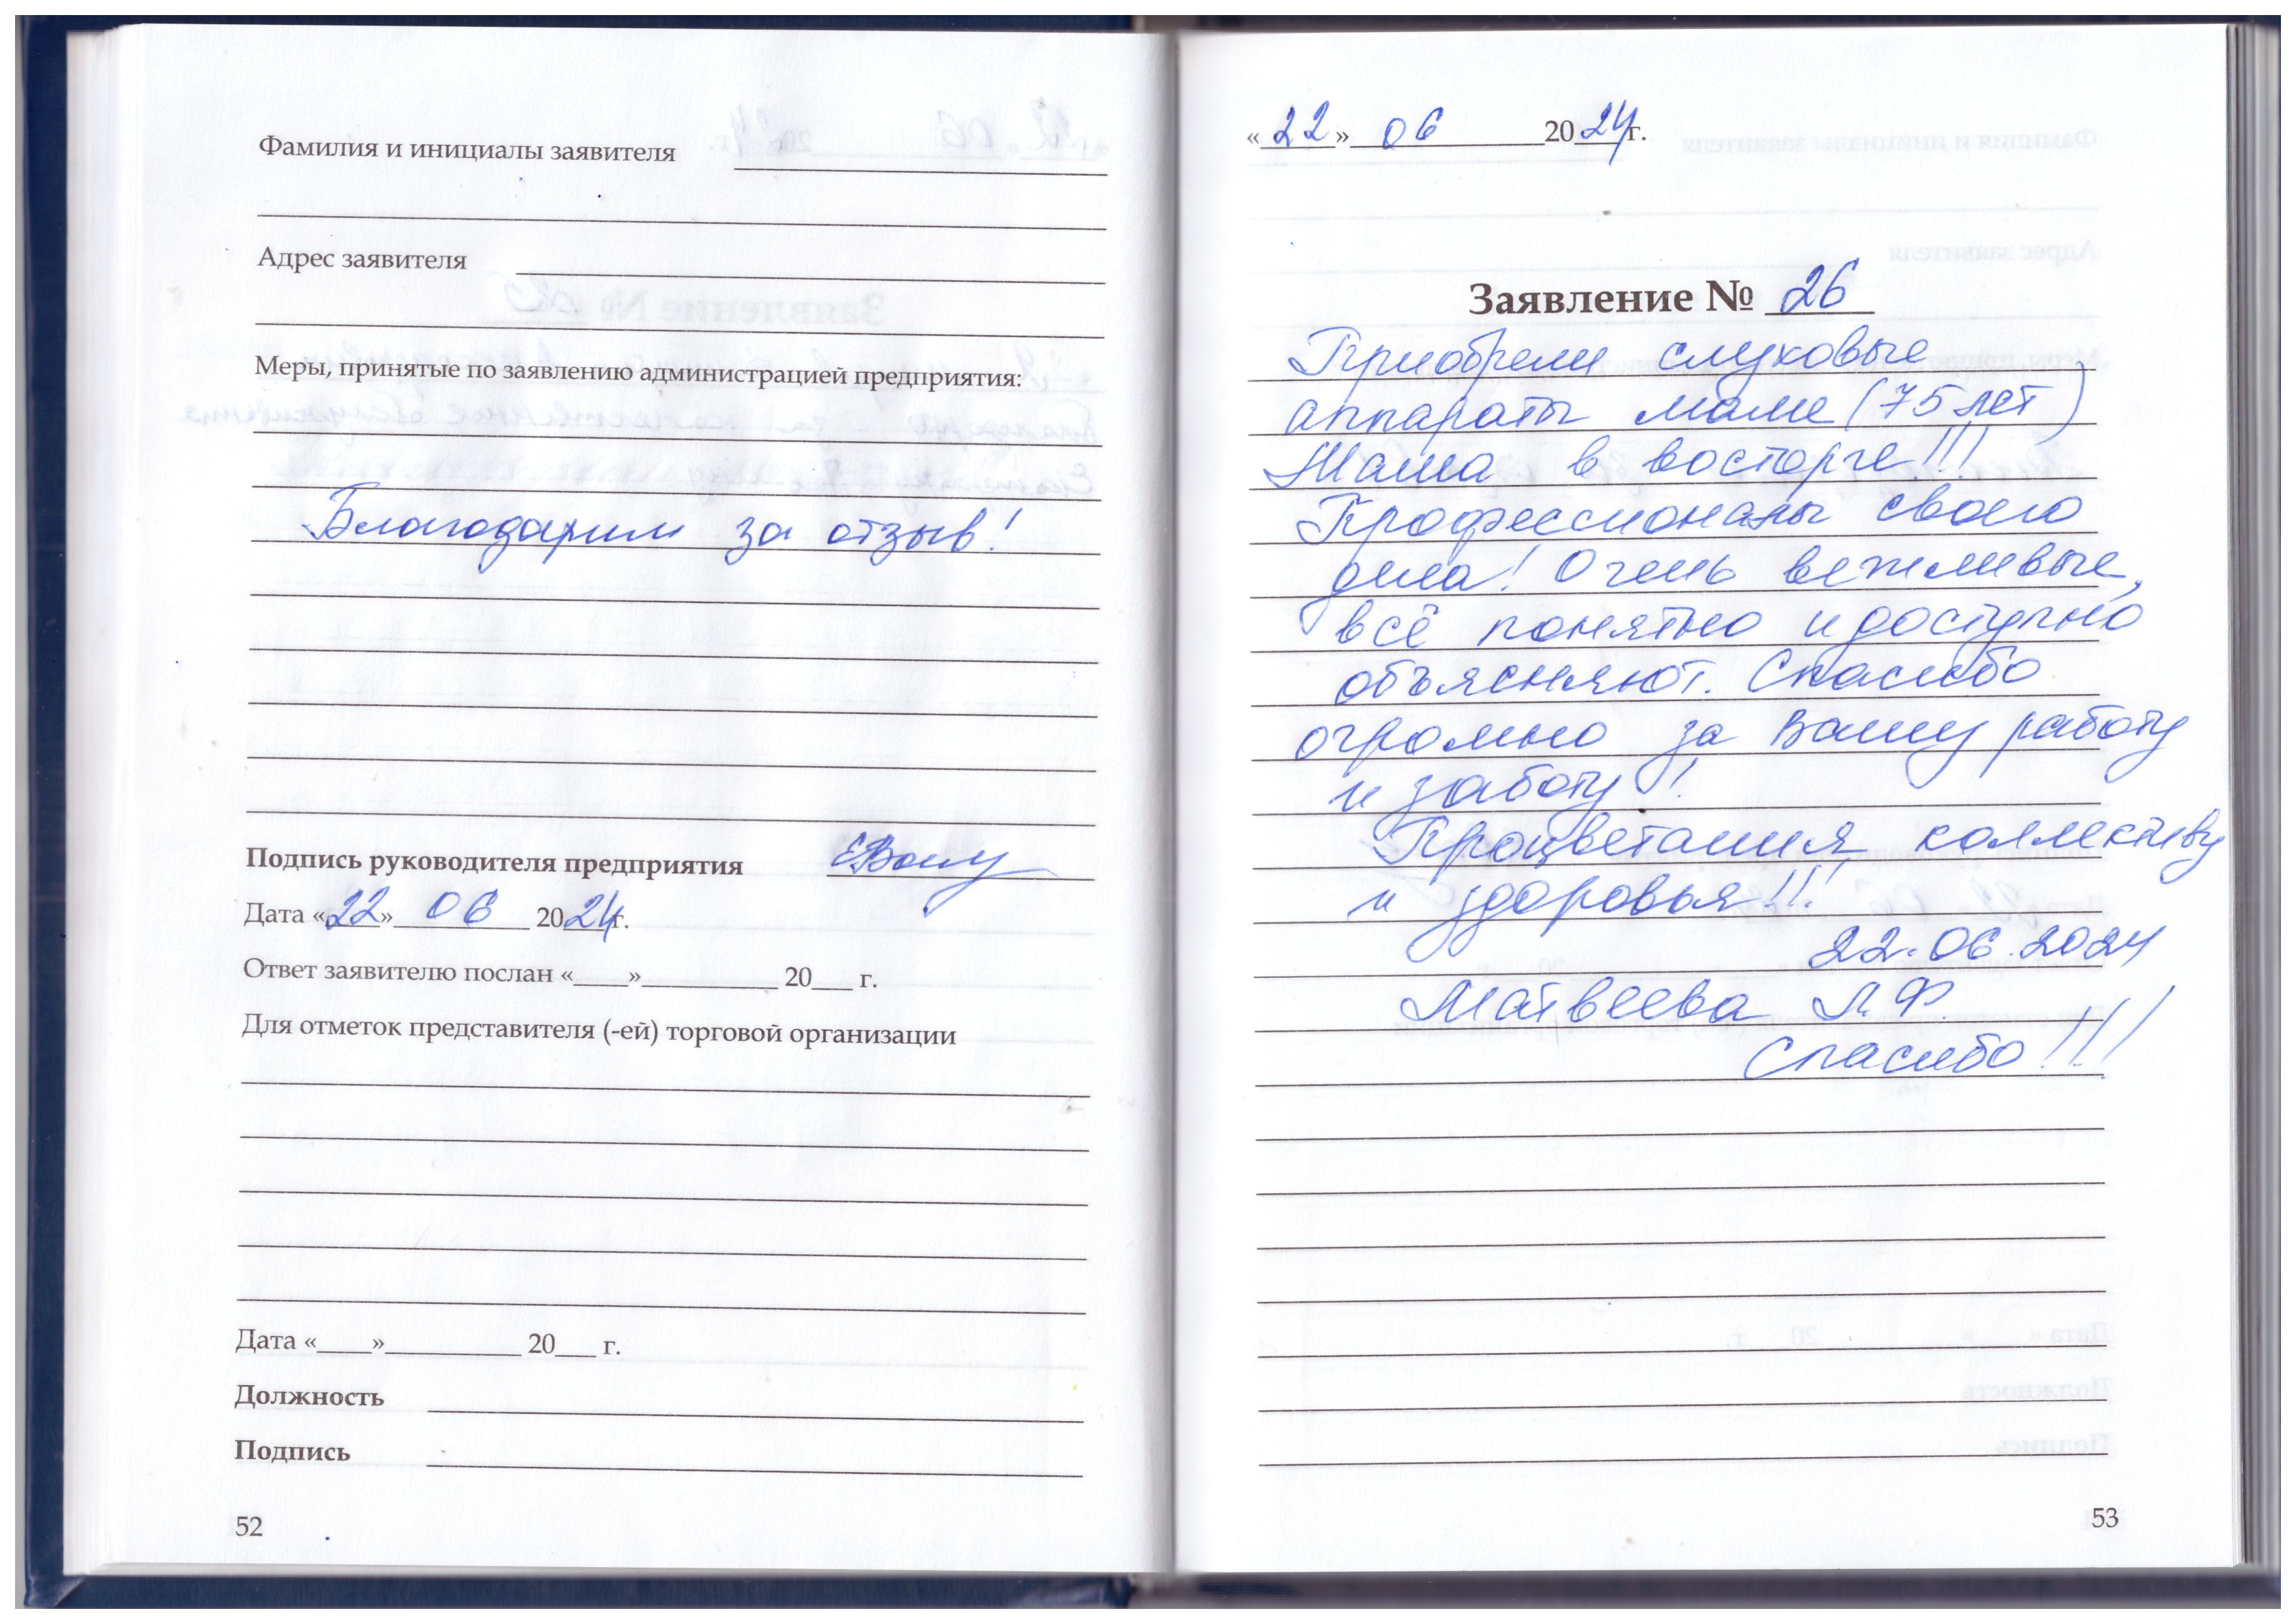 Фамилия и инициалы заявителя
Адрес заявителя
Меры, принятые по заявлению администрацией предприятия:
Благодарим за отзыв!
Подпись руководителя предприятия
Дата «22» 06 2024г.
Ответ заявителю послан «____»__________ 20___ г.
Для отметок представителя (-ей) торговой организации
Дата «____»__________ 20___ г.
Должность
Подпись
52
«22» 06 2024г.
Заявление № 26
Приобрели слуховые
аппараты маме (75 лет)
Мама в восторге!!!
Профессионалы своего
дела! Очень вежливые,
всё понятно и доступно
объясняют. Спасибо
огромно за Вашу работу
и заботу!
Процветания коллективу
и здоровья!!!
22.06.2024
Матвеева Л.Ф.
Спасибо!!!
53